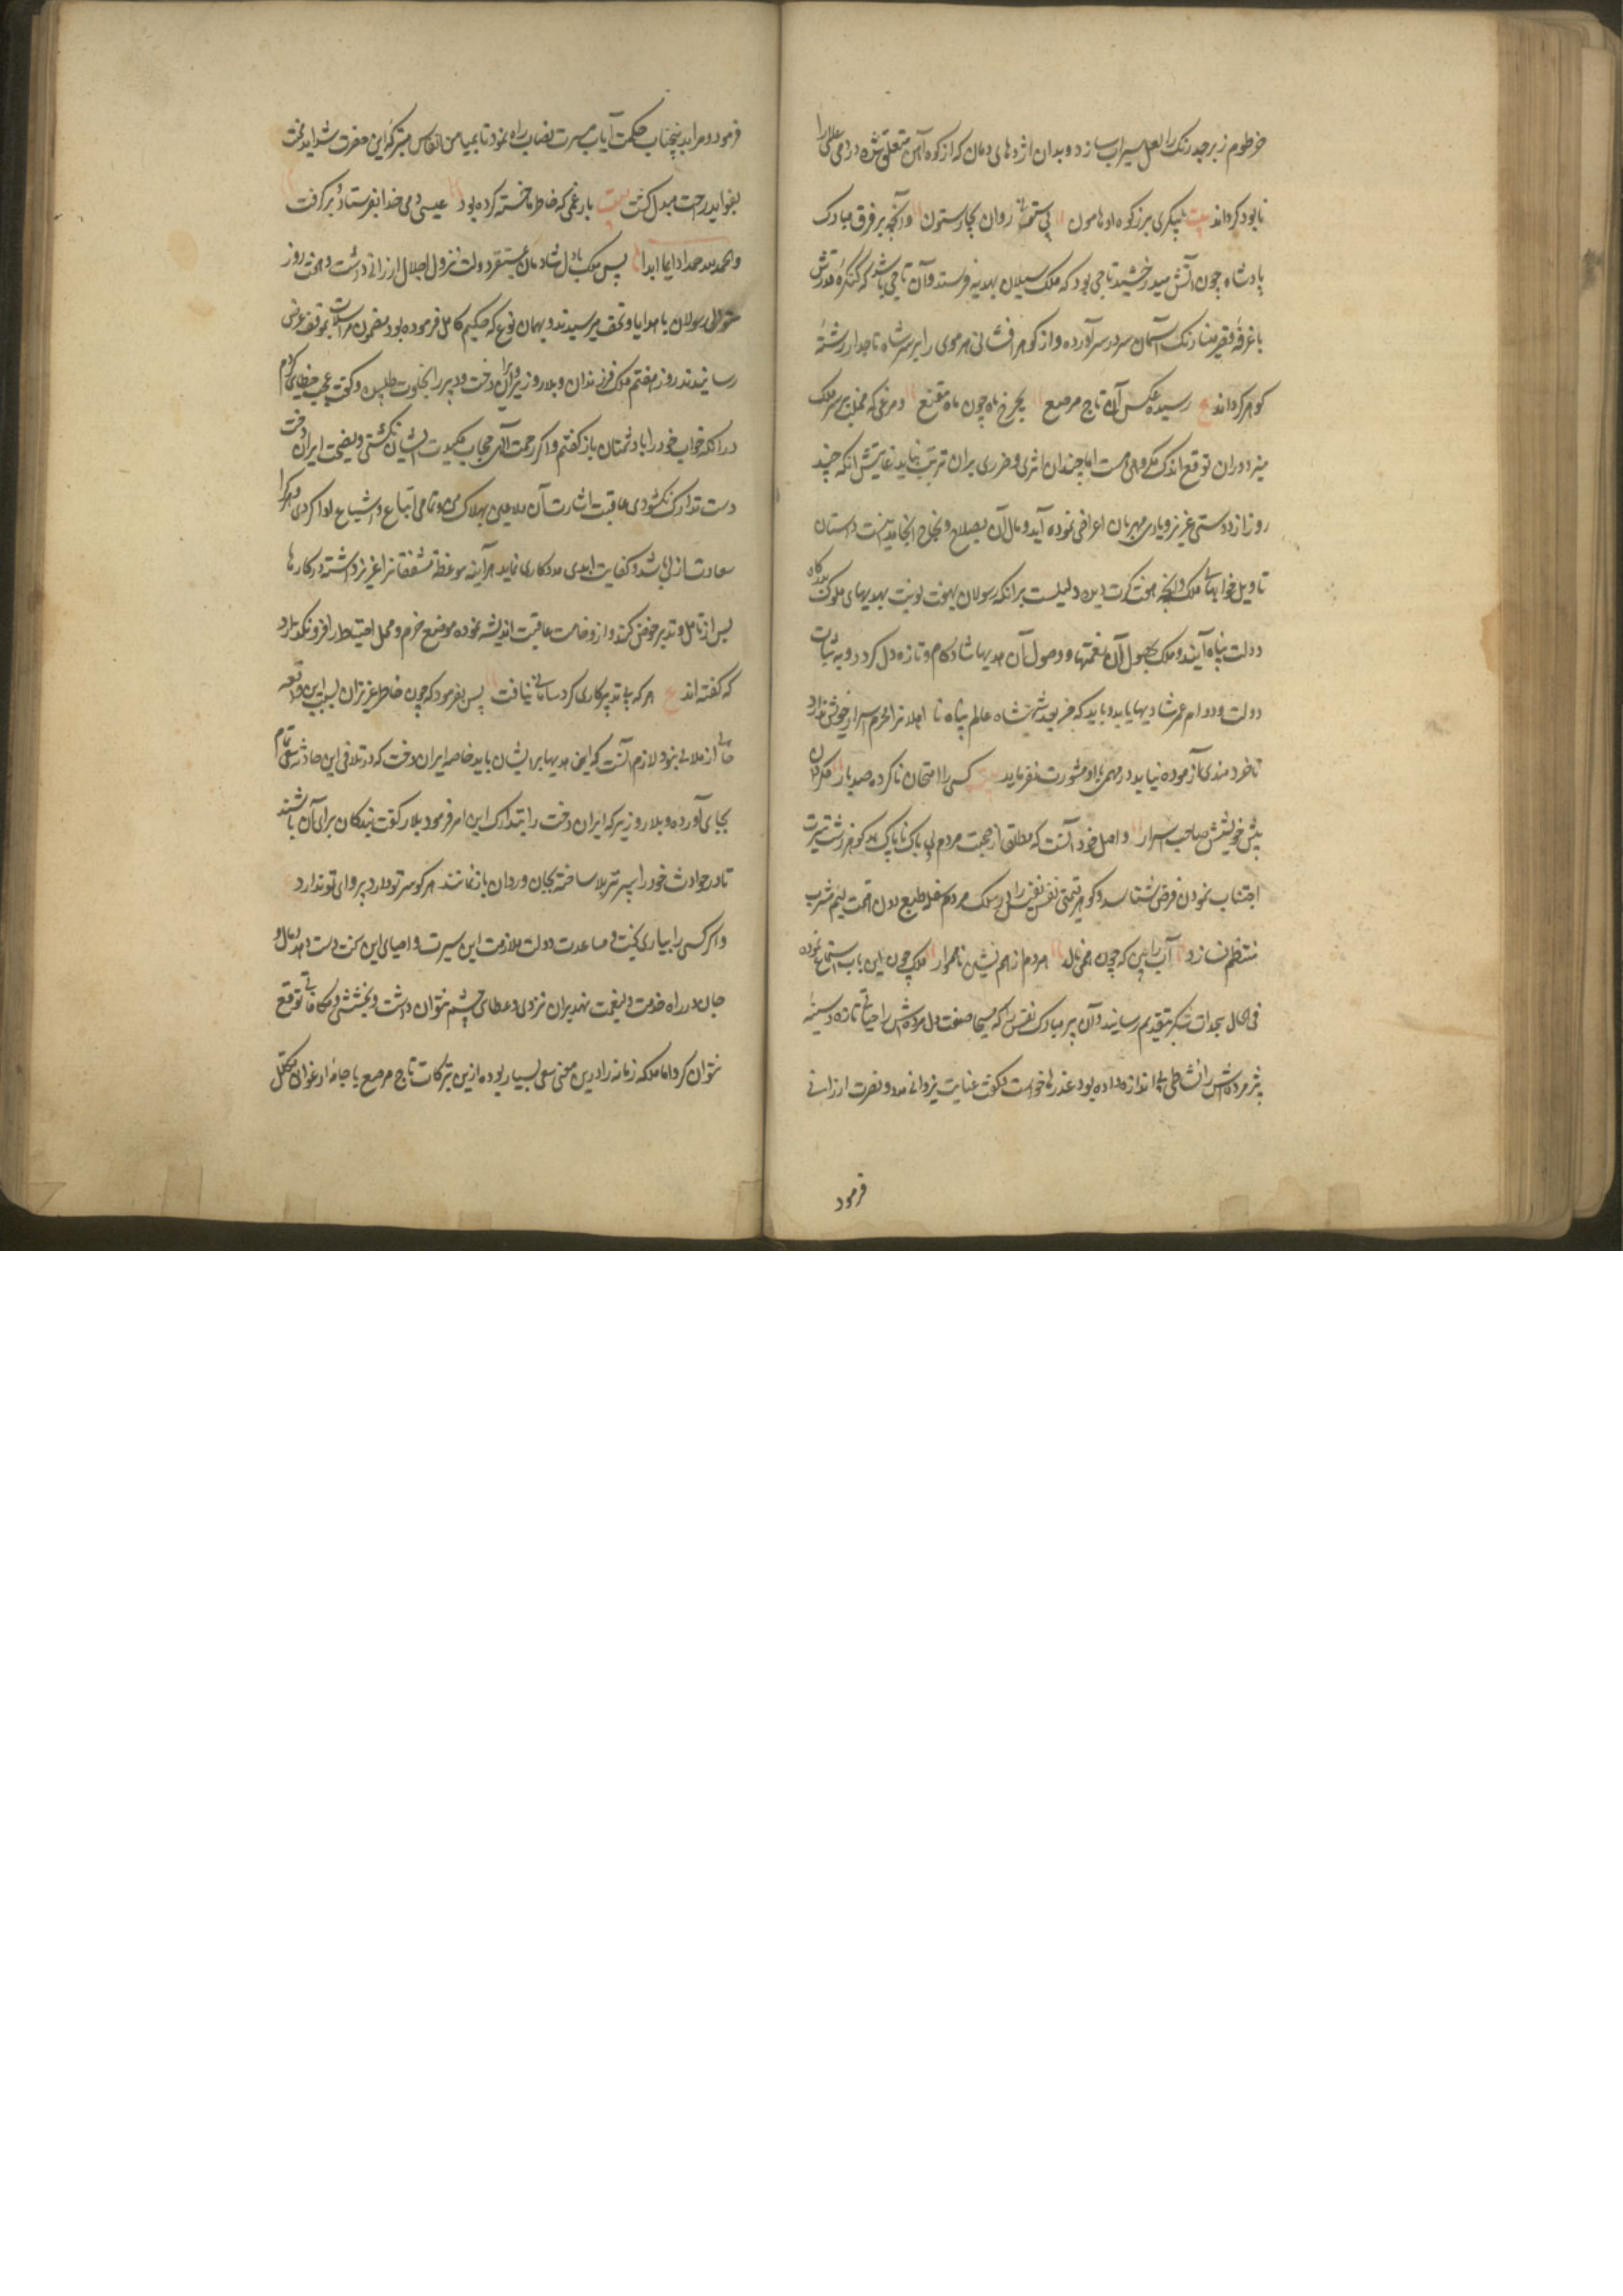 خرطوم زبرجد رنک را لعل سیراب سازد و بدان اژدهای دمان که از کوه آهن متعلق شده در دمی عالمی را
نابود کرداند بیت پیکری برز کوه او هامون بی ستونی روان بچار ستون و آنچه بر فرق مبارک
پادشاه چون آتش میدرخشید تاجی بود که ملک سیلان بهدیه فرستد و آن تاجی باشد که کنکرهٔ قدرش
با غرفهٔ قصر مینا رنک آسمان سر در سر آورده و از کوهر افشانی هر موی را بر سر شاه تاجدار رشتهٔ
کوهر کرداند ع رسیده عکس آن تاج مرصع بچرخ ماه چون ماه مقنع و مرغی که منقار بر سر ملک
میزد و ران توقع اندک مکروهی هست اما چندان اثری و ضرری بران ترتب نیابد غایتش آنکه چند
روز از دوستی عزیز و یاری مهربان اعراضی نموده آید و مآل آن بصلاح و نجاح انجامد اینست داستان
تاویل خوابهای ملک و آنچه هفت کرت دیده دلیلست بر انکه رسولان بهفت نوبت بهدیهای ملوک بدرکاه
دولت پناه آیند و ملک بحصول آن نعمتها و وصول آن هدیها شادکام و تازه دل کردد و به ثبات
دولت و دوام عمر شادیها یابد و باید که من بعد شهنشاه عالم پناه نا اهلانرا محرم اسرار خویش ندارد
تا خردمندی آزموده نیابد در مهمی با او مشورت نفرماید بیت کسی را امتحان ناکرده صد بار مکردان
پیش خویشش صاحب اسرار و اصل خود آنست که مطلقا از صحبت مردم بی باک ناپاک بد کوهر زشت سیرت
اجتناب نمودن فرض شناسد و کوهر قیمتی نفس نفیس را در سلک مردم سفله طبع دون همت لئیم مشرب
منتظم نسازد آب را بین که چون همی نالد هر دم از همنشین ناهموار ملک چون این باب استماع نموده
فی الحال سجدات شکر بتقدیم رسانید و آن پیر مبارک نفس را که مسیحا صفت دل مرده‌ش را حیاتی تازه و سینهٔ
پژمرده‌ش را نشاطی بی اندازه داده بود عذرها خواست و کفت عنایت یزدانی مدد و نصرت ارزانی
فرمود
فرمود و مرا بدینجناب حکمت آیاب مسرت نصاب راه نمود تا بمیامن انفاس متبرکه این حضرت شداید محنت
بفواید راحت مبدل کشت بیت بار غمی که خاطر ما خسته کرده بود عیسی دمی خدا بفرستاد و برکرفت
والحمد لله حمدا دایما ابدا پس ملک با دل شادمان بمستقر دولت نزول اجلال ارزانی داشت و هفت روز
متوالی رسولان با هدایا و تحف میرسیدند و بهمان نوع که حکیم کامل فرموده بود مضمون مراسلات بموقف عرض
رسانیدند روز هفتم ملک فرزندان و بلار وزیر و ایران دخت و دبیر را بخلوت طلبیده و کفت عجب خطایی کردم
در انکه خواب خود را با دشمنان باز کفتم و اکر رحمت الهی حجاب مکیدت ایشان نکشتی و نصیحت ایران دخت
دست تدارک نکشودی عاقبت اشارت آن ملاعین بهلاک من و تمامی اتباع و اشیاع ادا کردی و هر کرا
سعادت ازلی باشد و کفایت ابدی مددکاری نماید هر آینه موعظهٔ مشفقانرا عزیز داشته در کارها
پس از تامل و تدبر خوض کند و از وخامت عاقبت اندیشه نموده موضع حزم و محل احتیاط را فرو نکذارد
که کفته اند ع هر که بی تدبیر کاری کرد سامانی نیافت پس بفرمود که چون خاطر عزیزان بسبب این واقعه
خالی از ملالی نبود لازم آنست که این هدیها بر ایشان باید خاصه ایران دخت که در تلافی این حادثه سعی تمام
بجای آورده و بلار وزیر که ایران دخت را بتدارک این امر فرمود بلار کفت بندکان برای آن باشند
تا در حوادث خود را سپر تیر بلا ساخته بجان و روان باز نمانند هر کو سر تو دارد پروای تو ندارد
و اکر کسی را بیاری بخت و مساعدت دولت ملازمت این سیرت و احیای این سنت دست دهد مال و
جان در راه خدمت ولینعمت نهد بران نزدی و عطای چشم نتوان داشت و بخششی و مکافاتی توقع
نتوان کرد اما ملکه زمانه را درین معنی سعی بسیار بوده ازین تبرکات تاج مرصع یا جامهٔ ارغوانی مکلل